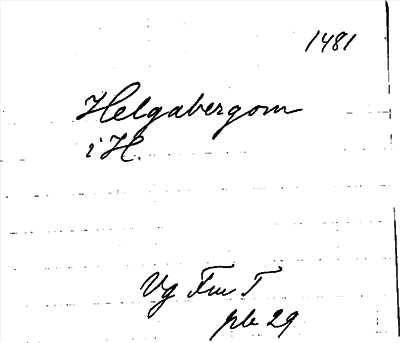 1481
Helgabergom
i H.
Vg Fm T
pb 29